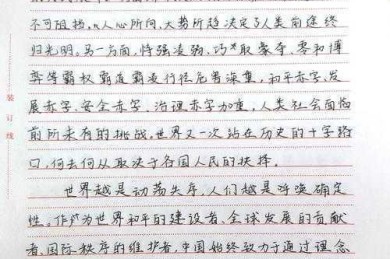 不可阻挡，人心所向、大势所趋决定了人类前途终
归光明。另一方面，恃强凌弱、巧取豪夺、零和博
弈等霸权霸道霸凌行径危害深重，和平赤字、发
展赤字、安全赤字、治理赤字加重，人类社会面临
前所未有的挑战。世界又一次站在历史的十字路
口，何去何从取决于各国人民的抉择。
世界越是动荡失序，人们越是呼唤确定
性。作为世界和平的建设者、全球发展的贡献
者、国际秩序的维护者，中国始终致力于通过理念
装订线